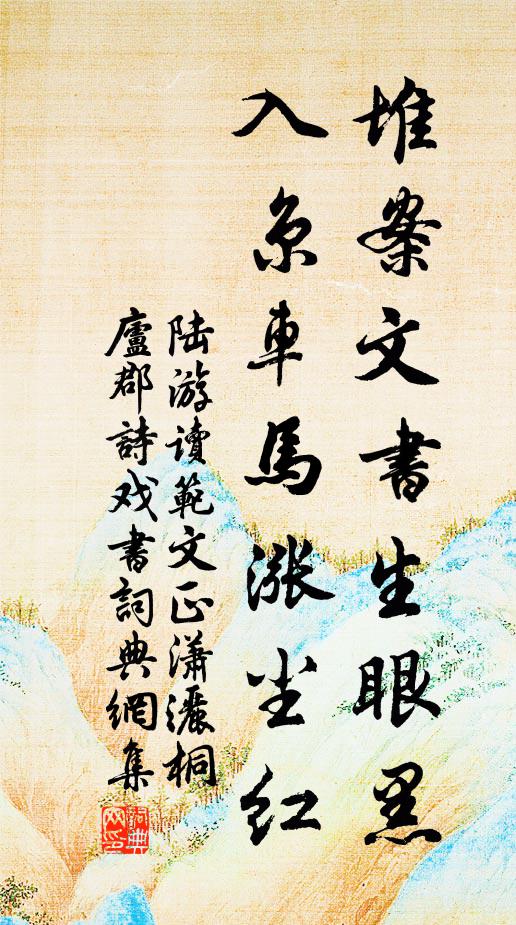 堆案文書生眼黑
入京車馬漲尘紅
陆游讀範文正瀟灑桐
廬郡詩戏書詞典網集
詞典
网印